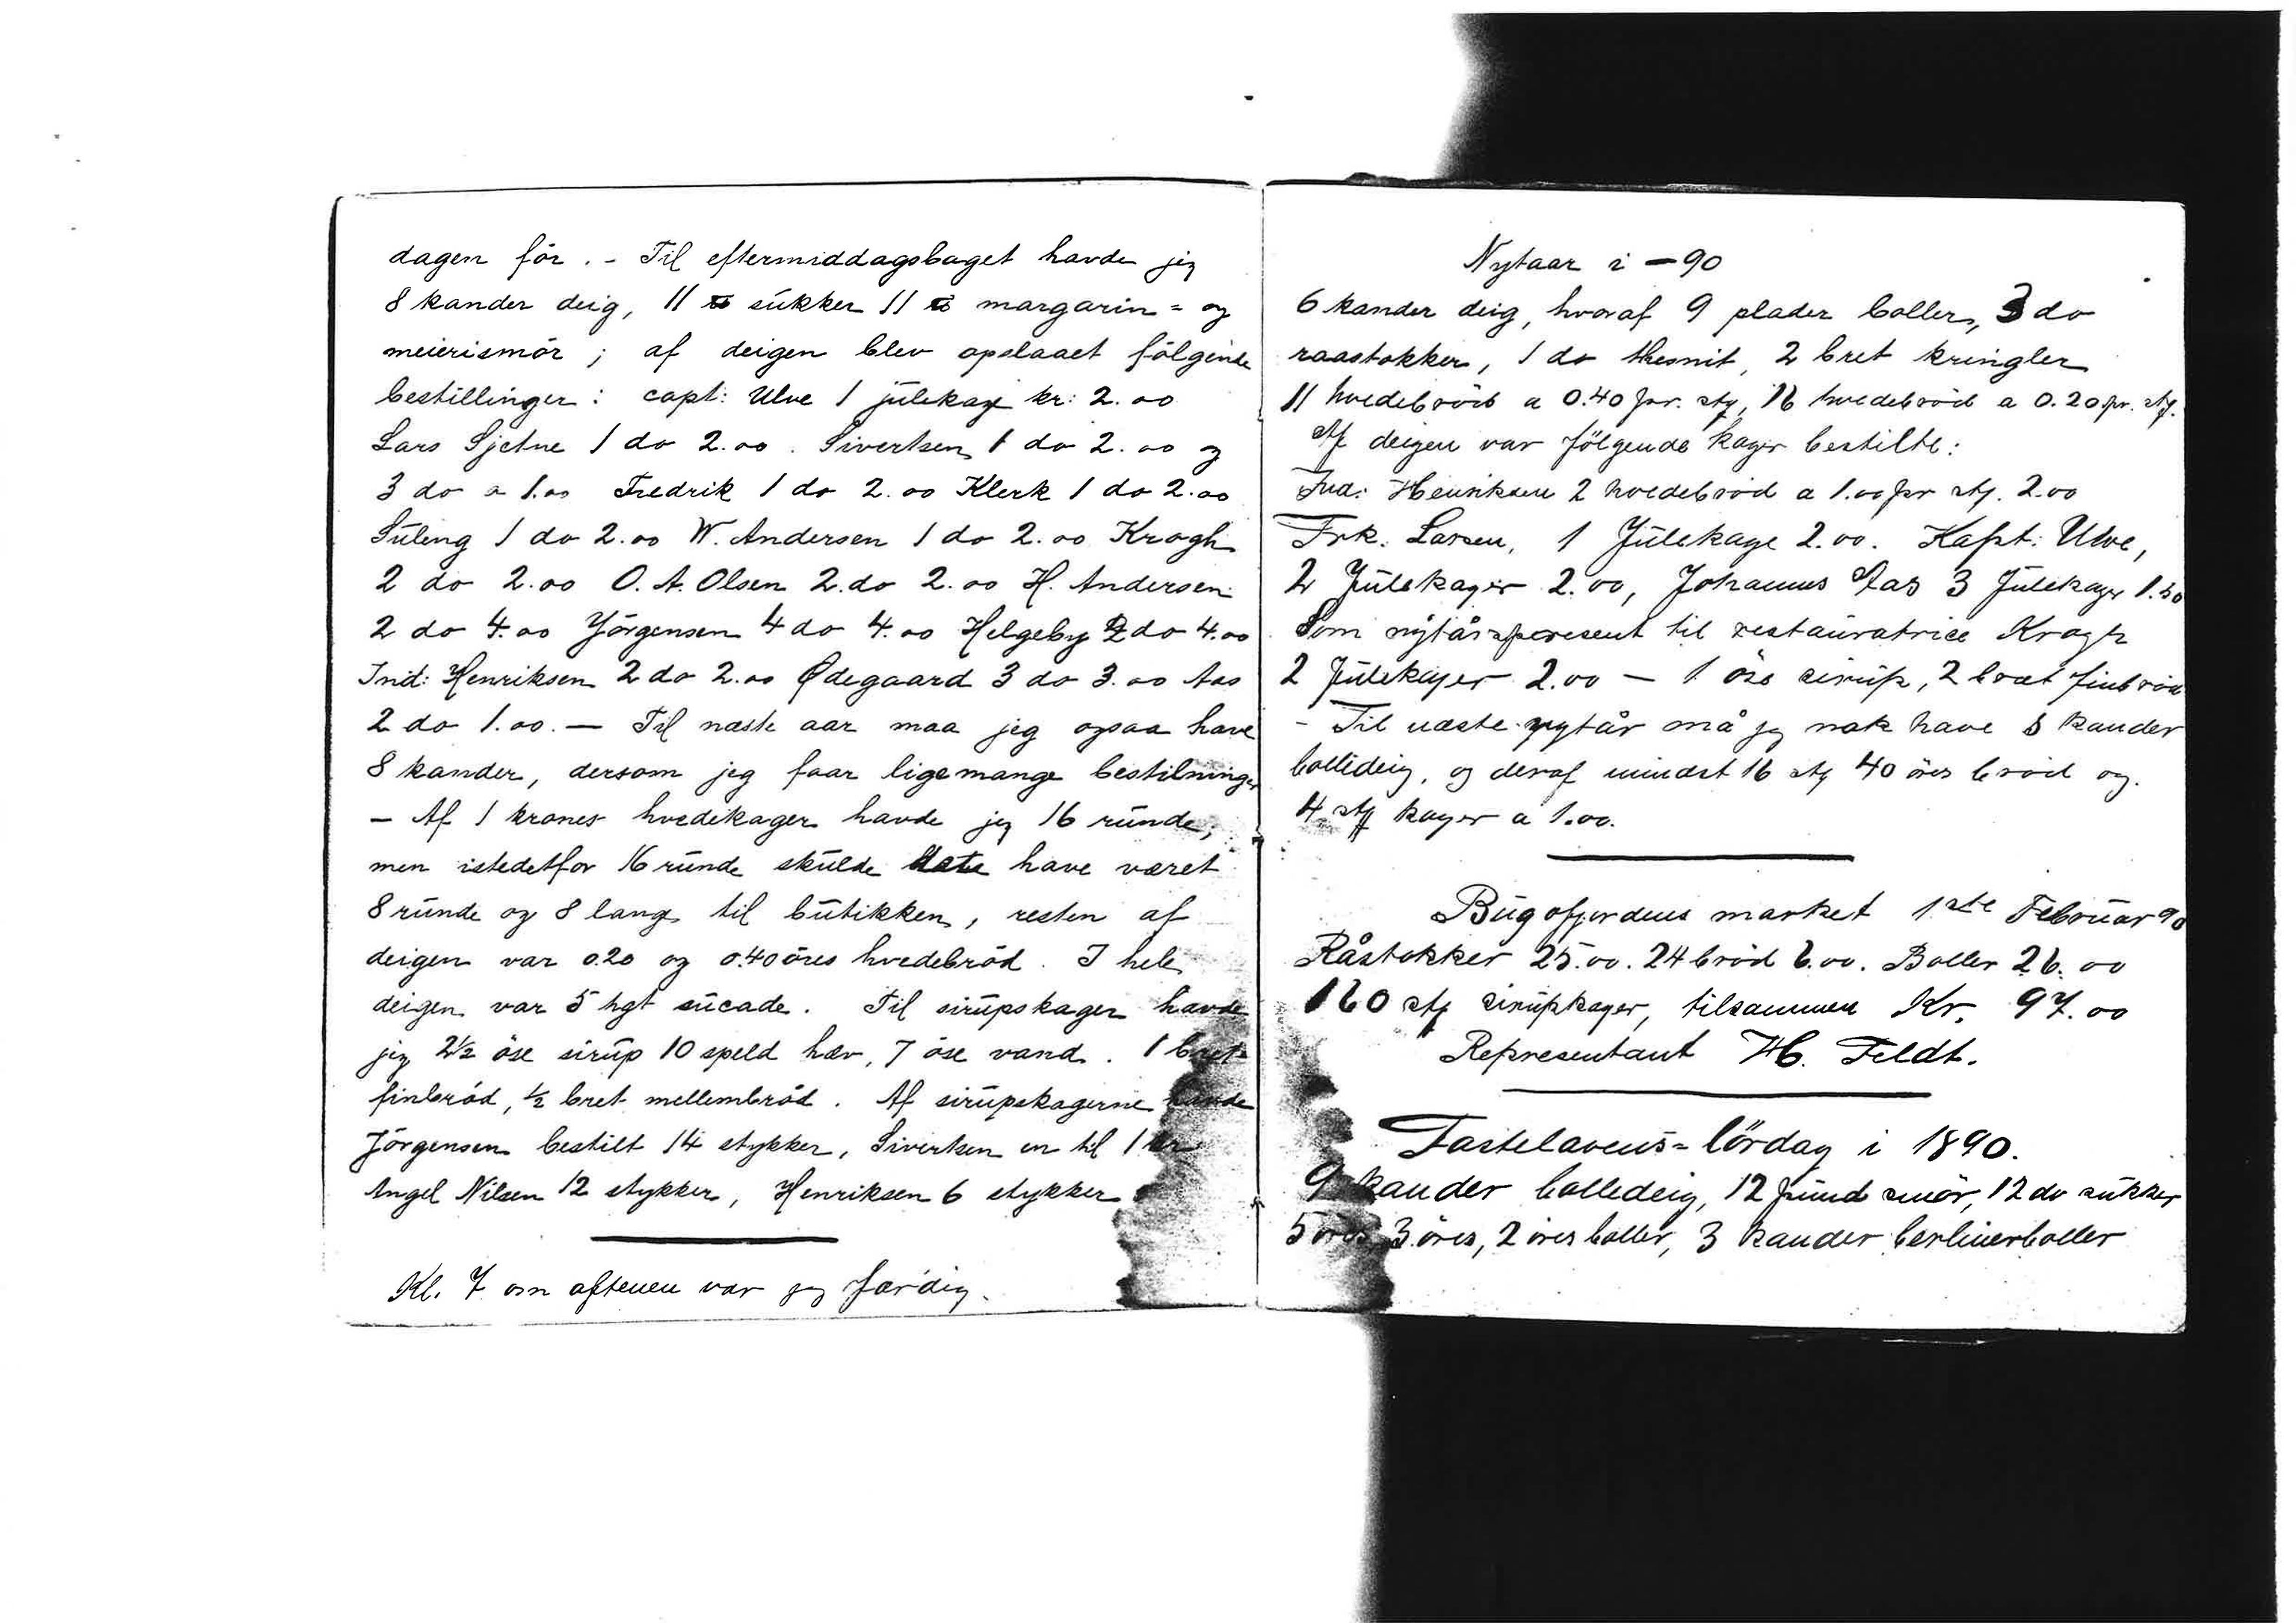 dagen før. - Til eftermiddagsbaget havde jeg
8 kander deig, 11 ℔ sukker 11 ℔ margarin= og
meierismør ; af deigen blev opslaaet følgende
bestillinger : capt: Ulve 1 julekage kr: 2.00
Lars Sjetne 1 do 2.00. Sivertsen 1 do 2.00 og
3 do a 1.00 Fredrik 1 do 2.00 Klerk 1 do 2.00
Suleng 1 do 2.00 W. Andersen 1 do 2.00 Krogh
2 do 2.00 O. A. Olsen 2 do 2.00 H. Andersen
2 do 4.00 Jørgensen 4 do 4.00 Helgeby 2 do 4.00
Ind: Henriksen 2 do 2.00 Ødegaard 3 do 3.00 Aas
2 do 1.00. — Til næste aar maa jeg ogsaa have
8 kander, dersom jeg faar ligemange bestilninger
- Af 1 krones hvedekager havde jeg 16 runde;
men istedetfor 16 runde skulde have været
8 runde og 8 lange til butikken, resten af
deigen var 0.20 og 0.40 øres hvedebrød. I hele
deigen var 5 hgt sucade. Til sirupskager havde
jeg 2½ øse sirup 10 speld hæv, 7 øse vand. 1 bret
finbrød, ½ bret mellembrød. Af sirupskagerne havde
Jørgensen bestilt 14 stykker, Sivertsen en til 1 kr
Angel Nilsen 12 stykker, Henriksen 6 stykker
Kl. 7 om aftenen var jeg færdig.
Nytaar i -90
6 kander deig, hvoraf 9 plader boller, 3 do
raastokker, 1 do thesnit, 2 bret kringler
11 hvedebrød a 0.40 pr. stk, 16 hvedebrød a 0.20 pr. stk.
Af deigen var følgende kager bestilte:
Ind: Henriksen 2 hvedebrød a 1.00 pr stk. 2.00
Frk. Larsen, 1 Julekage 2.00. Kapt: Ulve,
2 Julekager 2.00, Johannes Aas 3 Julekager 1.50
Som nytårspresent til restauratrice Krogh
2 Julekager 2.00 — 1 øse sirup, 2 bræt finbrød
- Til næste nytår må jeg nok have 8 kander
bolledeig, og deraf mindst 16 stk 40 øres brød og
4 stk kager a 1.00.
Bugøfjordens market 1ste Februar 90
Råstokker 25.00. 24 brød 6.00. Boller 26.00
160 stk sirupkager, tilsammen Kr. 97.00
Representant H. Feldt.
Fastelavens=lørdag i 1890.
9 kander bolledeig, 12 pund smør, 12 do sukker
5 øres, 3 øres, 2 øres boller, 3 kander berlinerboller